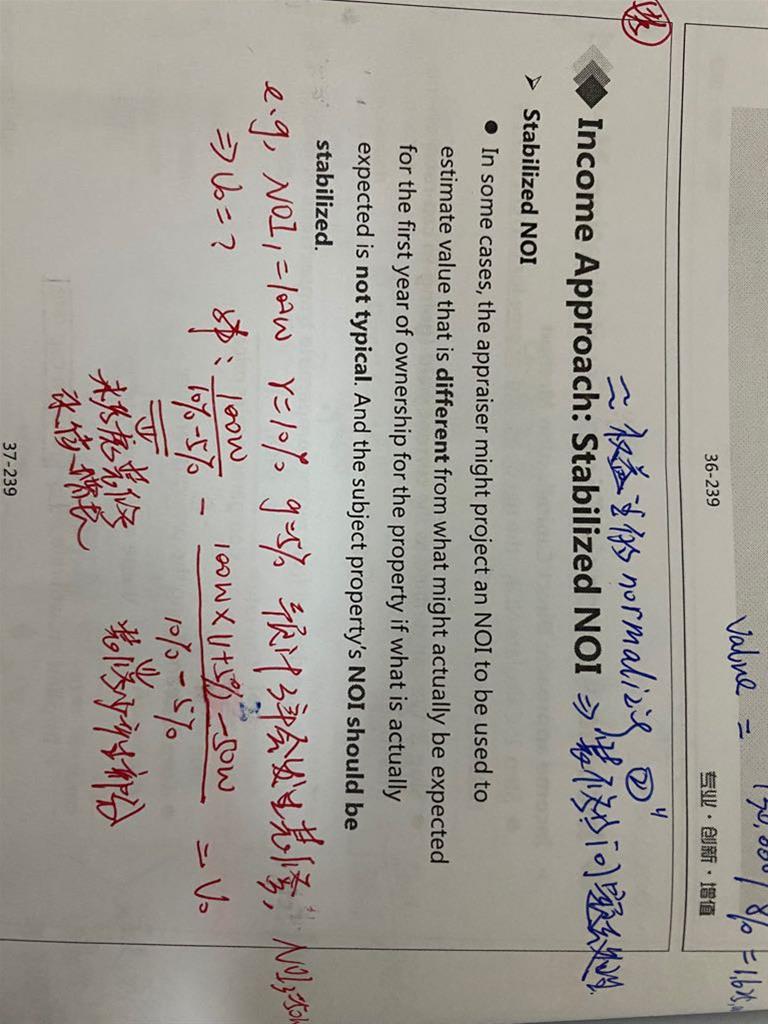 Value = 130,000/8% = 1,625,
36-239
专业·创新·增值
Income Approach: Stabilized NOI
≈ 权益法的 normalize ④ ⇒ 装修分问题
➢ Stabilized NOI
● In some cases, the appraiser might project an NOI to be used to
estimate value that is different from what might actually be expected
for the first year of ownership for the property if what is actually
expected is not typical. And the subject property's NOI should be
stabilized.
e.g, NOI₁=100W r=10% g=5% 预计3年会发生装修, NOI₃=50W
⇒ V₀=? 第: 100W / 10%-5% - 100W×(1+5%)-50W / 10%-5% = V₀
未考虑装修
永续增长
装修
37-239